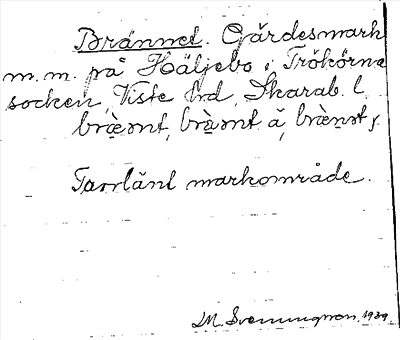 Brännet. Gärdesmark
m.m. på Häljebo i Trökörna
socken, Viste hrd, Skarab. l.
bræ̀nt, bræ̀nt å, bræ̀nt,
Torrlänt markområde.
M. Svenungsson. 1939